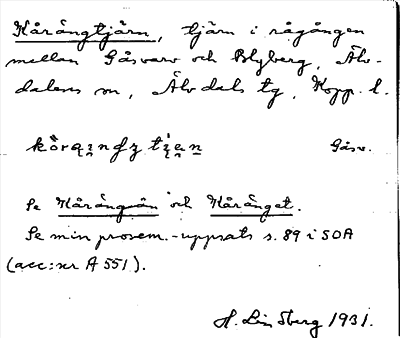 Kårängtjärn, tjärn i rågången
mellan Gåsvarv och Blyberg, Älv-
dalens sn, Älvdals tg, Kopp. l.
Gåsv.
Se Kårängsån och Kåränget.
Se min prosem.-uppsats s. 89 i SOA
(acc:nr A 551).
H. Lindberg 1931.